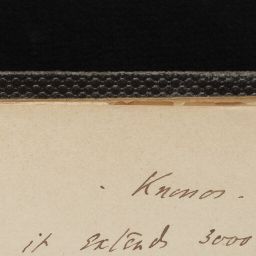 . Knonos.
it extends 3000